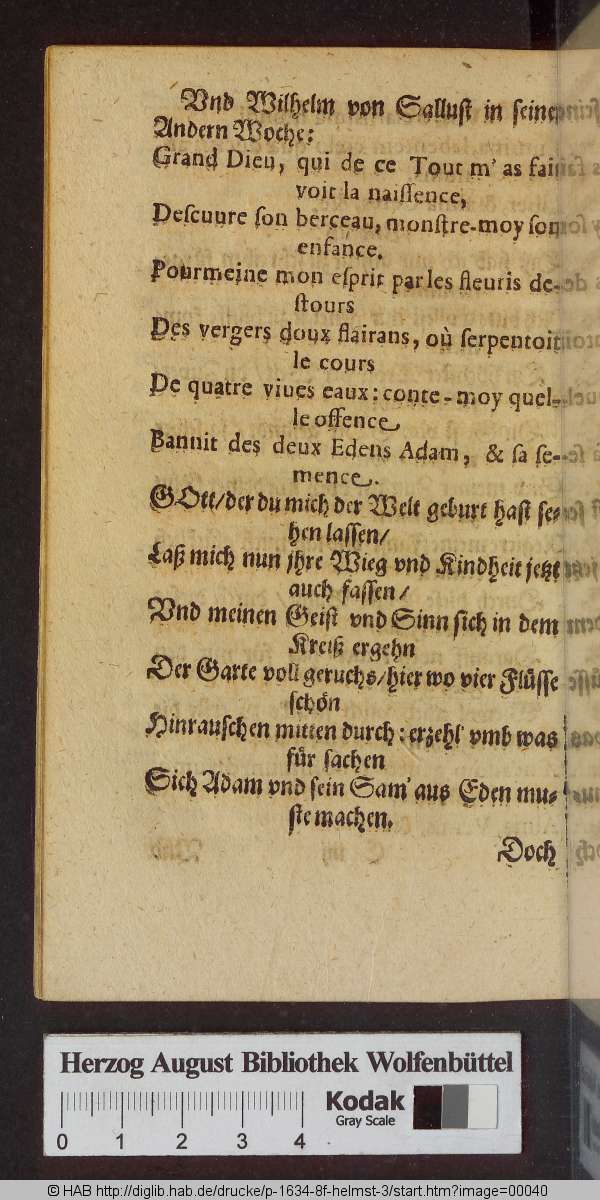 Vnd Wilhelm von Sallust in seiner
Andern Woche:
Grand Dieu, qui de ce Tout m'as fait
voir la naiſſence,
Deſcuure ſon berceau, monſtre-moy ſon
enfance.
Pourmeine mon eſprit par les fleuris de-
ſtours
Des vergers doux flairans, où ſerpentoit
le cours
De quatre viues eaux: conte-moy quel-
le offence
Bannit des deux Edens Adam, & ſa ſe-
mence.
GOtt/der du mich der Welt geburt haſt ſe-
hen laſſen/
Laß mich nun jhre Wieg vnd Kindheit jetzt
auch faſſen/
Vnd meinen Geiſt vnd Sinn ſich in dem
Kreiß ergehn
Der Garte voll geruchs/hier wo vier Flüſſe
ſchön
Hinrauſchen mitten durch: erzehl' vmb was
für ſachen
Sich Adam vnd ſein Sam' aus Eden mu-
ſte machen.
Doch
Herzog August Bibliothek Wolfenbüttel
Kodak
Gray Scale
0 1 2 3 4
© HAB http://diglib.hab.de/drucke/p-1634-8f-helmst-3/start.htm?image=00040